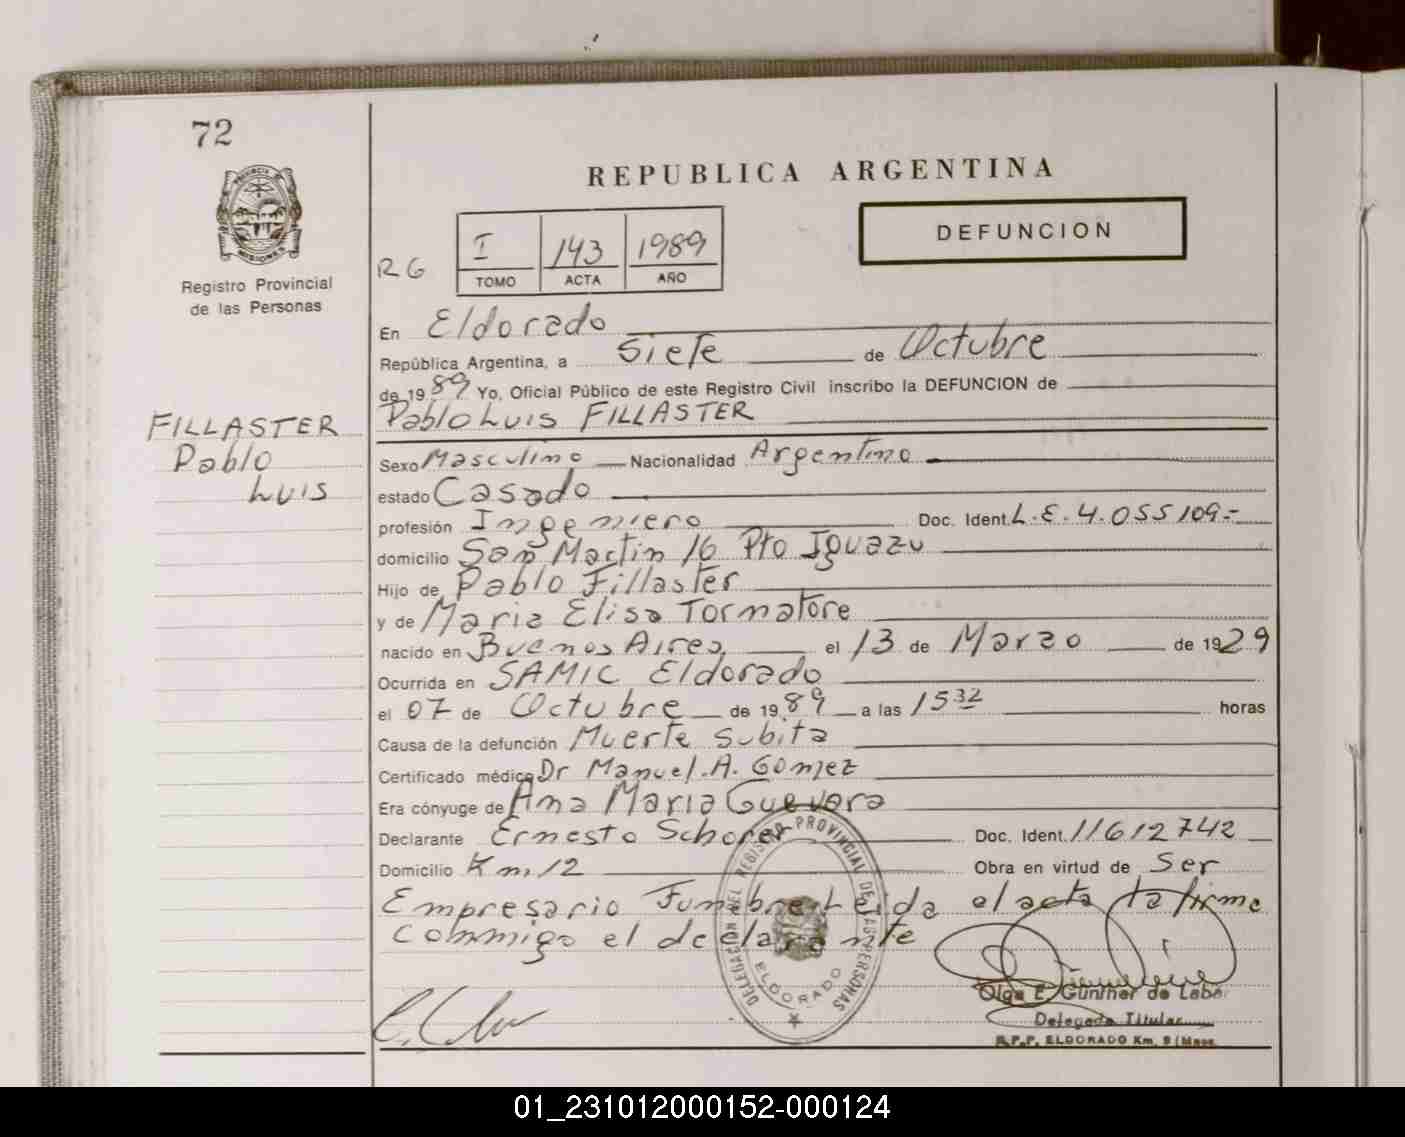 72
REPUBLICA ARGENTINA
PROVINCIA DE MISIONES
Registro Provincial
de las Personas
DEFUNCION
RG
I 143 1989
TOMO ACTA AÑO
En Eldorado
República Argentina, a Siete de Octubre
de 19 89 Yo, Oficial Público de este Registro Civil inscribo la DEFUNCION de
Pablo Luis FILLASTER
FILLASTER
Pablo
Luis
Sexo Masculino Nacionalidad Argentino
estado Casado
profesión Ingeniero Doc. Ident. L.E. 4.055109.-
domicilio San Martin 16 Pto Iguazu
Hijo de Pablo Fillaster
y de Maria Elisa Tornatore
nacido en Buenos Aires el 13 de Marzo de 1929
Ocurrida en SAMIC Eldorado
el 07 de Octubre de 19 89 a las 15 32 horas
Causa de la defunción Muerte subita
Certificado médico Dr Manuel.A. Gomez
Era cónyuge de Ana Maria Guevara
Declarante Ernesto Schorer Doc. Ident. 11612742
Domicilio Km 12 Obra en virtud de Ser
Empresario Funebre Leida el acta la firma
conmigo el declarante
DELEGACIÓN DEL REGISTRO PROVINCIAL DE LAS PERSONAS
ELDORADO
Olga E. Günther de Labar
Delegada Titular
R.P.P. ELDORADO Km. 9 (Mnes.
01_231012000152-000124